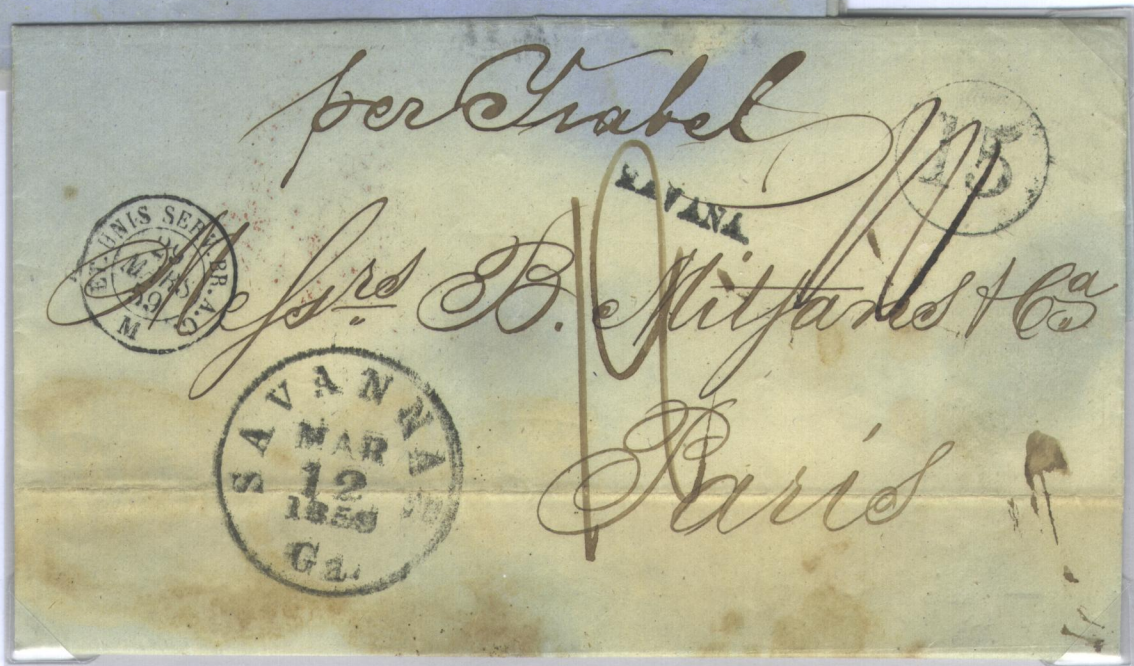 per Isabel
15
HAVANA
ET. UNIS SERV. BR. A.C.
MARS
59
M
Messrs. B. Mitjans & Ca
Paris
SAVANNAH
MAR
12
1859
Ga.